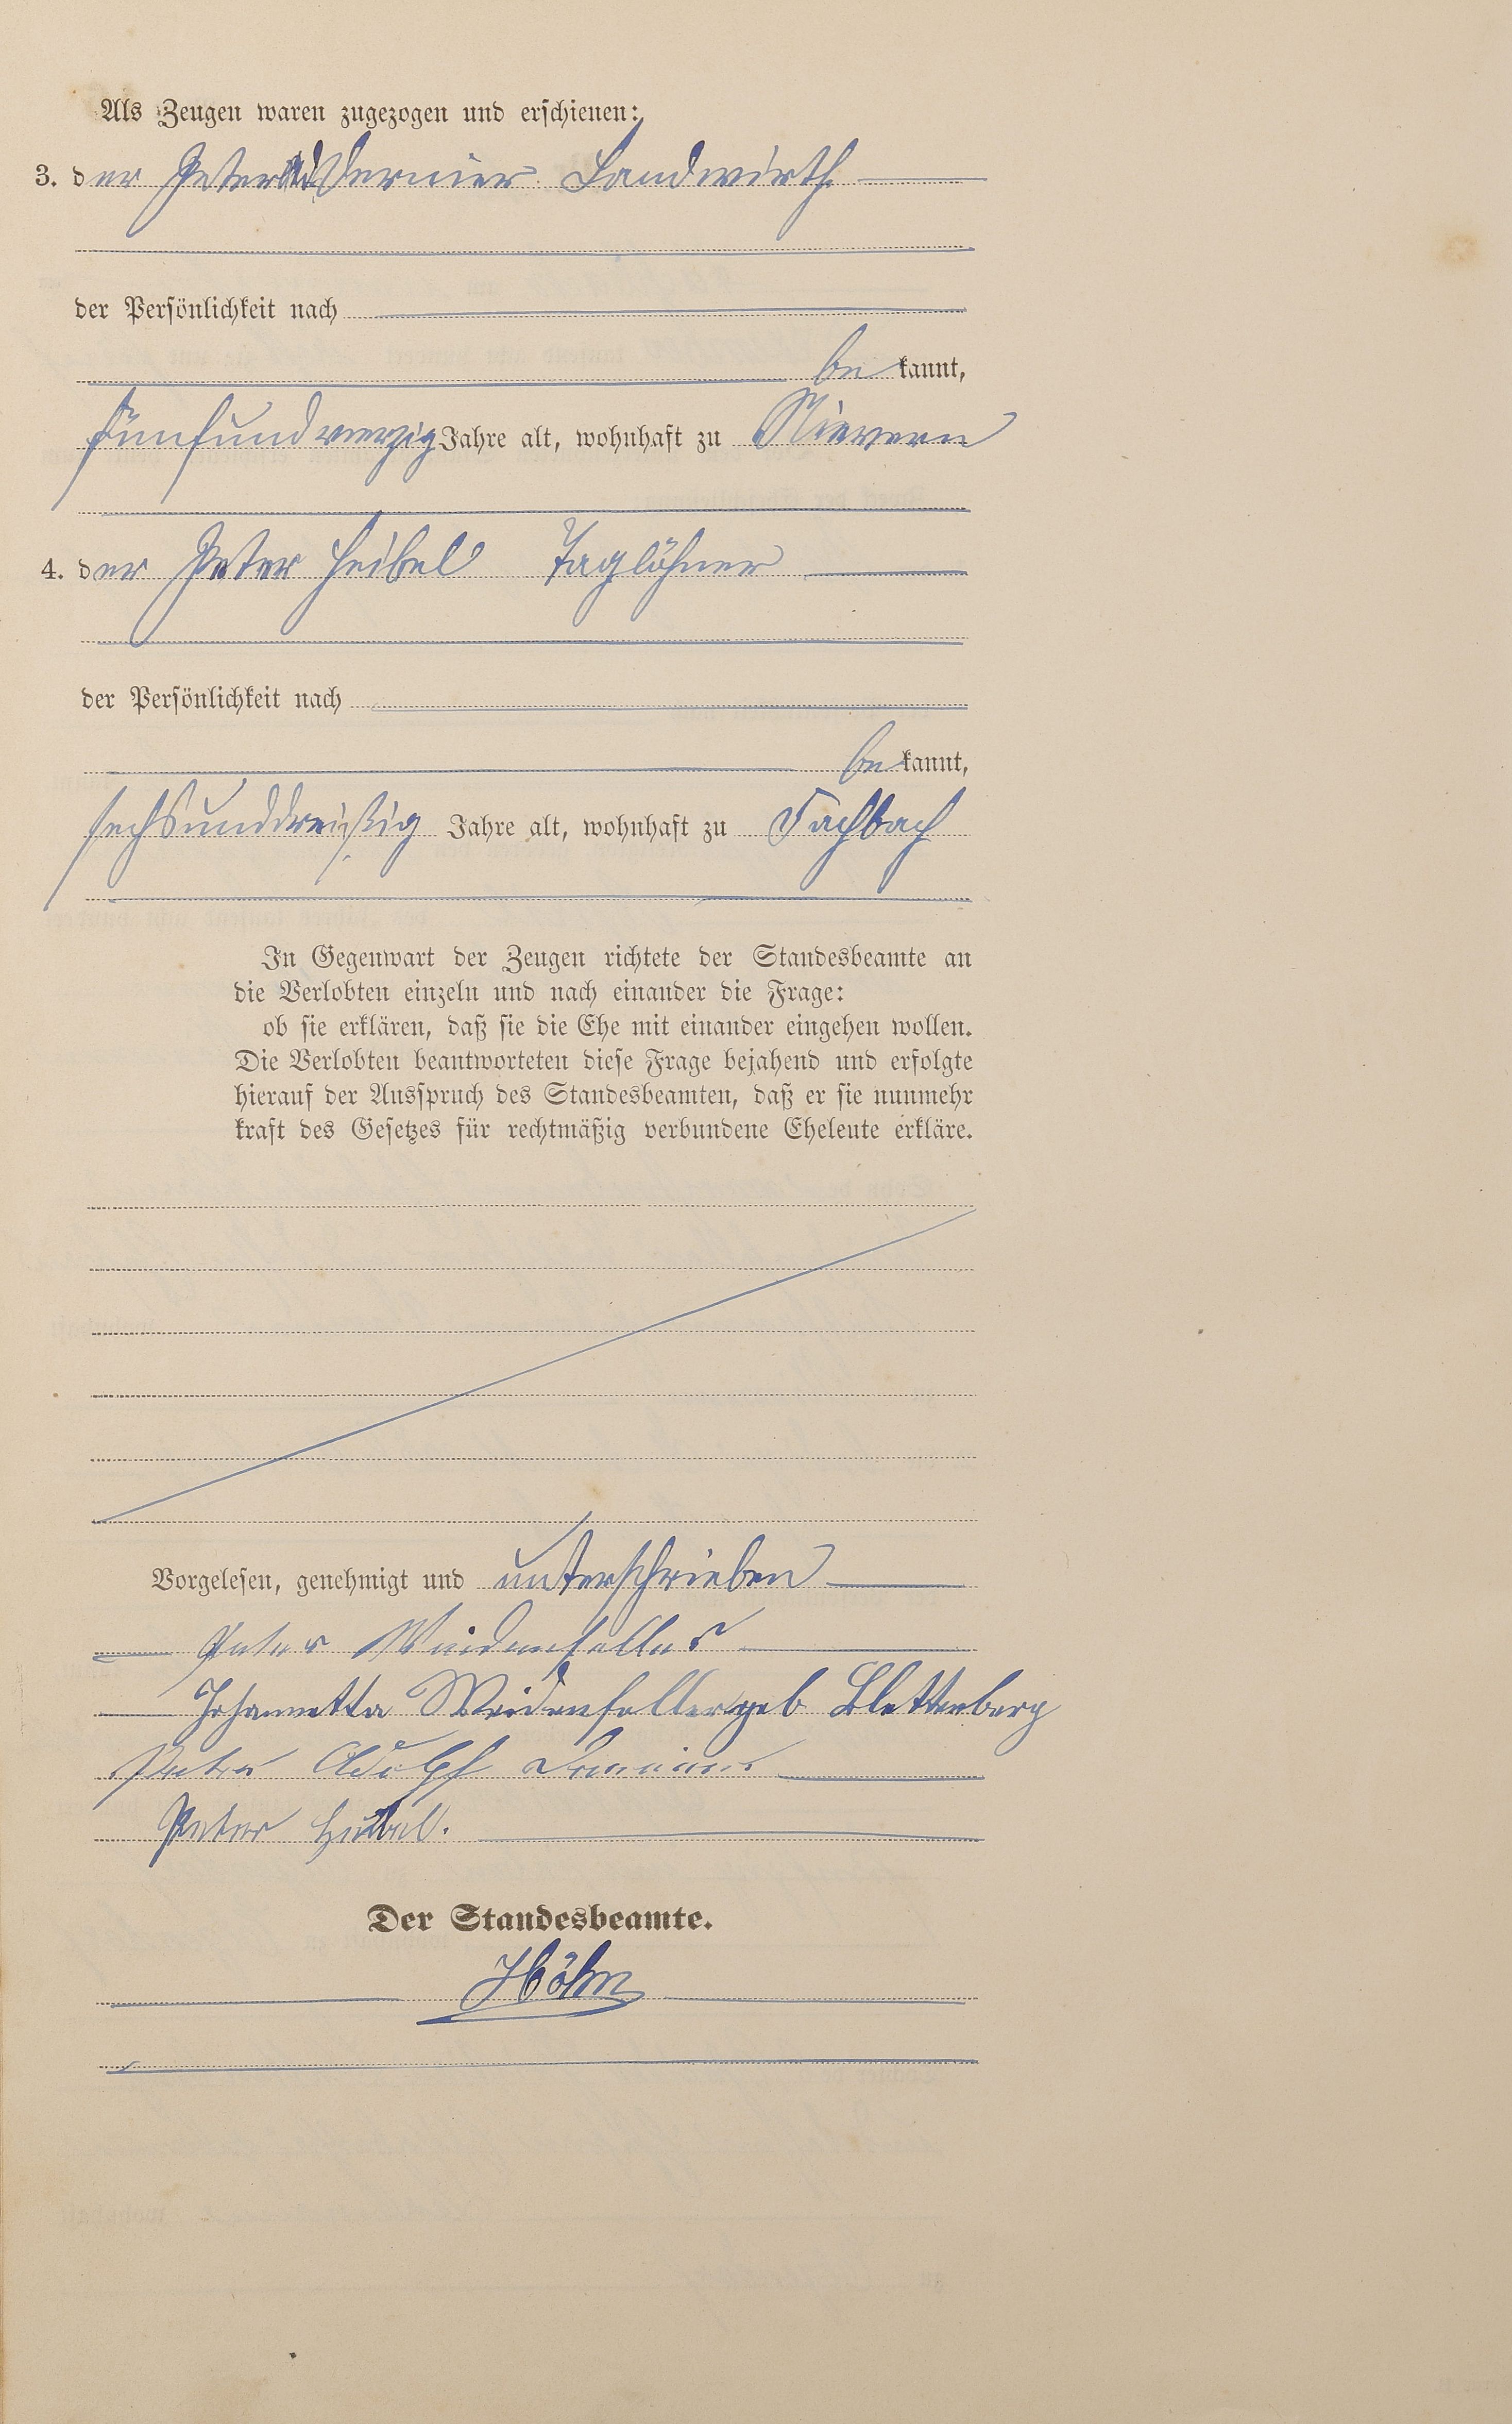 Als Zeugen waren zugezogen und erschienen:
3. der Peter Ad. Landwirth
der Persönlichkeit nach
be kannt,
fünfundvierzig Jahre alt, wohnhaft zu Nievern
4. der Peter Heibel Taglöhner
der Persönlichkeit nach
be kannt,
sechsunddreißig Jahre alt, wohnhaft zu Fachbach
In Gegenwart der Zeugen richtete der Standesbeamte an
die Verlobten einzeln und nach einander die Frage:
ob sie erklären, daß sie die Ehe mit einander eingehen wollen.
Die Verlobten beantworteten diese Frage bejahend und erfolgte
hierauf der Ausspruch des Standesbeamten, daß er sie nunmehr
kraft des Gesetzes für rechtmäßig verbundene Eheleute erkläre.
Vorgelesen, genehmigt und unterschrieben
Peter Weidenfeller
Johannetta Weidenfeller geb Blettenberg
Peter Adolf
Peter Heibel.
Der Standesbeamte.